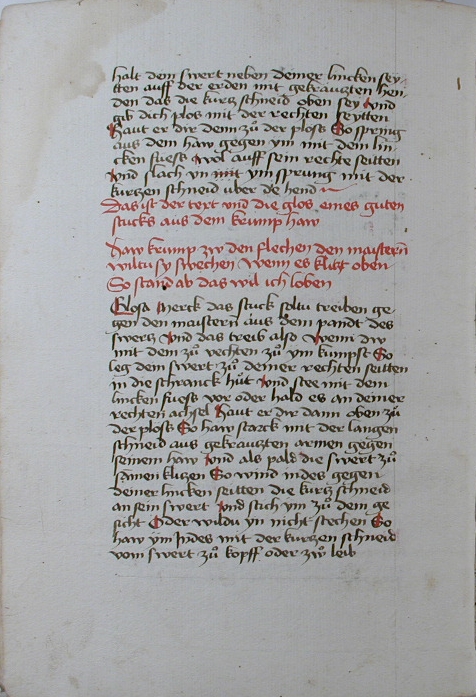 halt dem swert neben deiner lincken sey
tten auff der erden mit gekrautzten hen
den das die kurtz schneid oben sey Und
gib dich plos mit der rechten seytten
Haut er dir denn zů der plosß So spring
aus dem haw gegen ym mit dem lin
cken fuesß wol auff sein rechte seitten
Und slach yn mit ym sprung mit der
kurtzen schneid uber de hend
Das ist der text und die glos eines guten
stucks aus dem krump haw
Haw krump zw den flechen den maistern
wiltu sy swechen Wenn es klitzt oben
So stand ab das wil ich loben
Glosa Merck das stuck soltu treiben ge
gen den maistern aus dem pandt des
swertz Und das treib also Wenn dw
mit dem zů vechten zů ym kumpst So
leg dem swert zů deiner rechten seitten
in die schranck hůt Und stee mit dem
lincken fuesß vor oder hald es an deiner
rechten achsel Haut er dir dann oben zů
der plosß So haw starck mit der langen
schneid aus gekrautzten armen gegen
seinem haw Und als pald die swert zů
samen klitzen So wind indes gegen
deiner lincken seitten die kurtz schneid
an sein swert Und stich ym zů dem ge
sicht Oder wildu yn nicht stechen So
haw ym Indes mit der kurtzen schneid
vom swert zů kopff oder zw leib